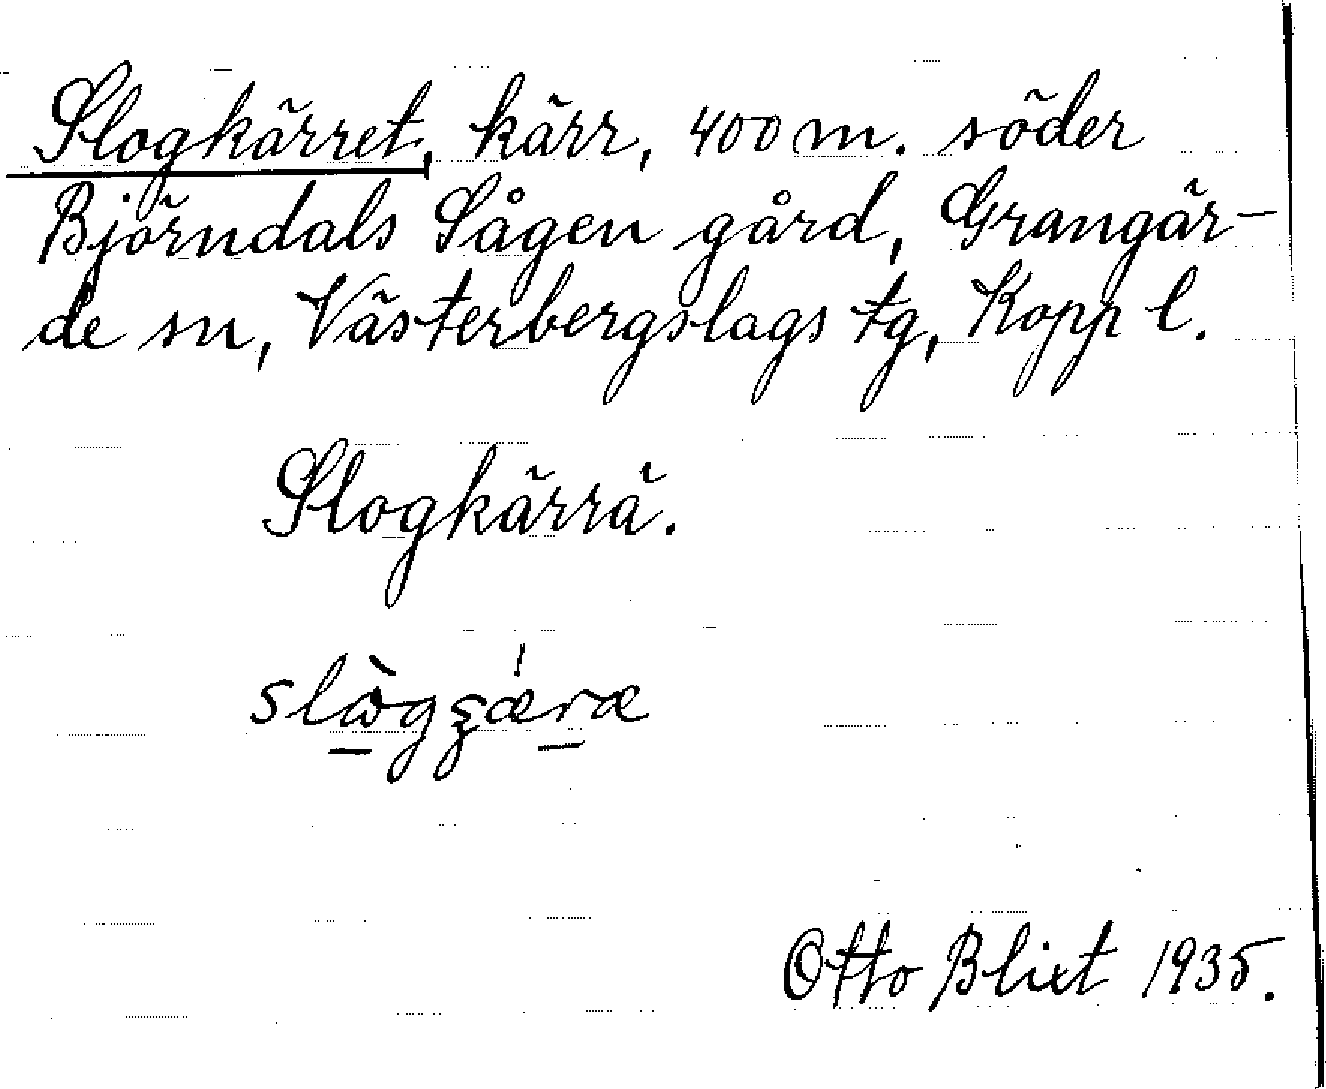 Slogkärret, kärr, 400 m. söder
Björndals Sågen gård, Grangär-
de sn, Västerbergslags tg, Kopp l.
Slogkärrä.
Otto Blixt 1935.